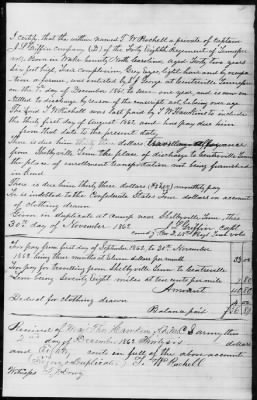 I certify, that the within named T. W. Pachell a private of Captain
J. T. Griffin company (D) of the Forty Eighth Regiment of Tennessee
vols. Born in Wake County North Carolina, aged Forty two years
six feet high, Dark complexion, Grey eyes, light hair and by occupa-
tion a farmer, was enlisted by J. J. George at Centreville Tennessee
on the day of December 1861, to serve one year, and is now en-
titled to discharge by reason of the conscript act, he being over age.
The said T. W. Pachell was last paid by T. W. Hawkins to include
the thirty first day of August 1862 and has pay due him
from that date to the present day.
There is due him thirty three dollars
from Shelbyville Tenn the place of discharge to Centreville Tenn
the place of enrollment transportation not being furnished
in kind.
There is due him thirty three dollars monthly pay
He is indebted to the Confederate States Four dollars on account
of clothing drawn
Given in duplicate at camp near Shelbyville Tenn, this
30th day of November 1862
J. T. Griffin Capt
Comd'g Co. D 48th Regt Tenn Vols
For pay from first of September 1862, to 30th November
1862 being three months at Eleven dollars per month 33.00
For pay for travelling from Shelbyville Tenn to Centreville
Tenn being Seventy eight miles at ten cents per mile 7.80
Amount 40.80
Deduct for clothing drawn 4.00
Balance paid $36.80
Received of Maj Thos. Hawkins, C. S. army this
2nd day of December 1862 Thirty six dollars
and Eighty cents in full of the above account
(Signed duplicate) T. W. Pachell
Witness